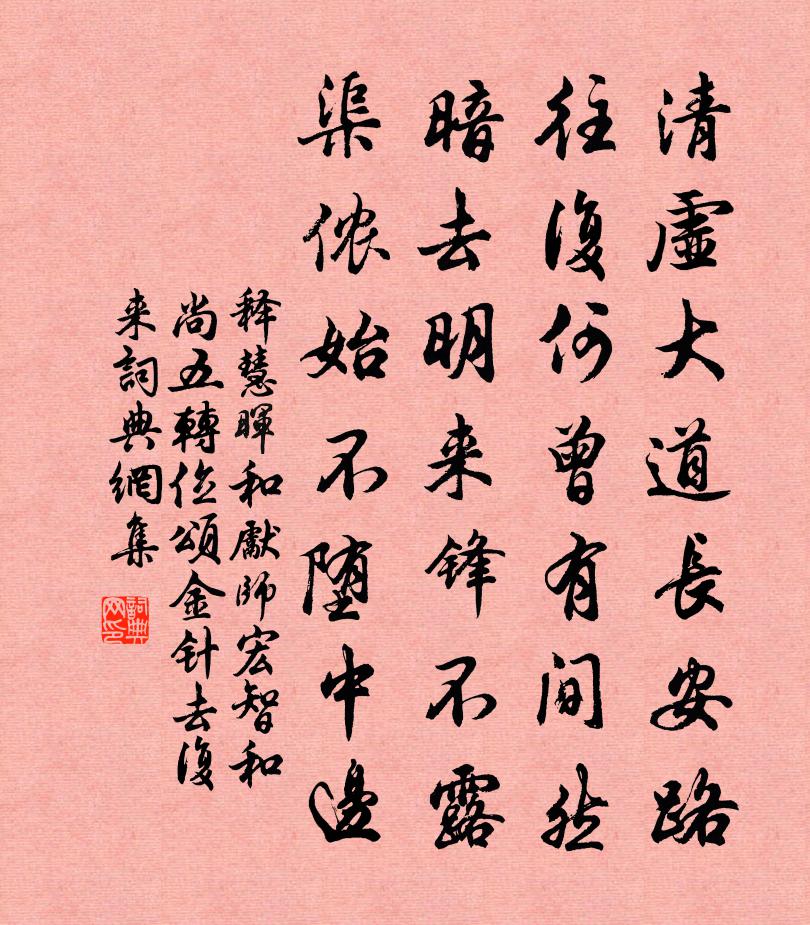 清虛大道長安路
往復何曾有间然
暗去明来锋不露
渠侬始不堕中邊
释慧暉和獻師宏智和
尚五轉位頌金针去復
来詞典網集
詞典网印